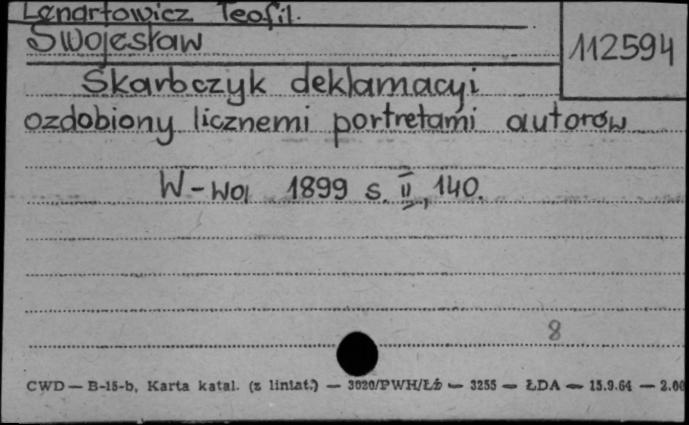 Lenartowicz Teofil.
Swojesław
112594
Skarbczyk deklamacyi
ozdobiony licznemi portretami autorów
W-wa 1899 s. II, 140.
8
CWD — B-15-b, Karta katal. (z liniat.) — 3020/PWH/Łż — 3255 — ŁDA — 15.9.64 — 2.00